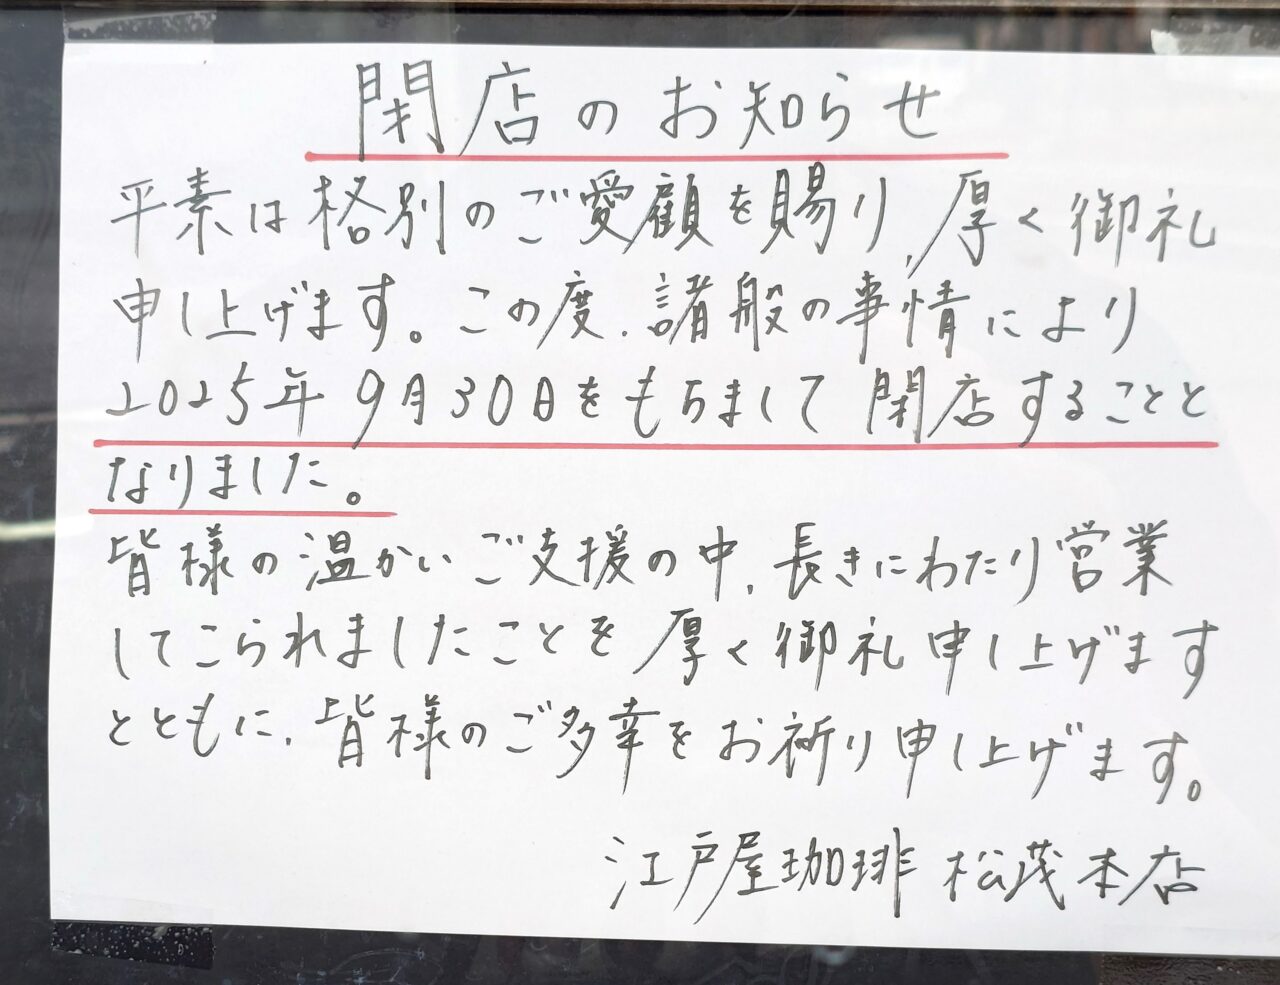 閉店のお知らせ
平素は格別のご愛顧を賜り、厚く御礼
申し上げます。この度、諸般の事情により
2025年9月30日をもちまして閉店することと
なりました。
皆様の温かいご支援の中、長きにわたり営業
してこられましたことを厚く御礼申し上げます
とともに、皆様のご多幸をお祈り申し上げます。
江戸屋珈琲 松茂本店